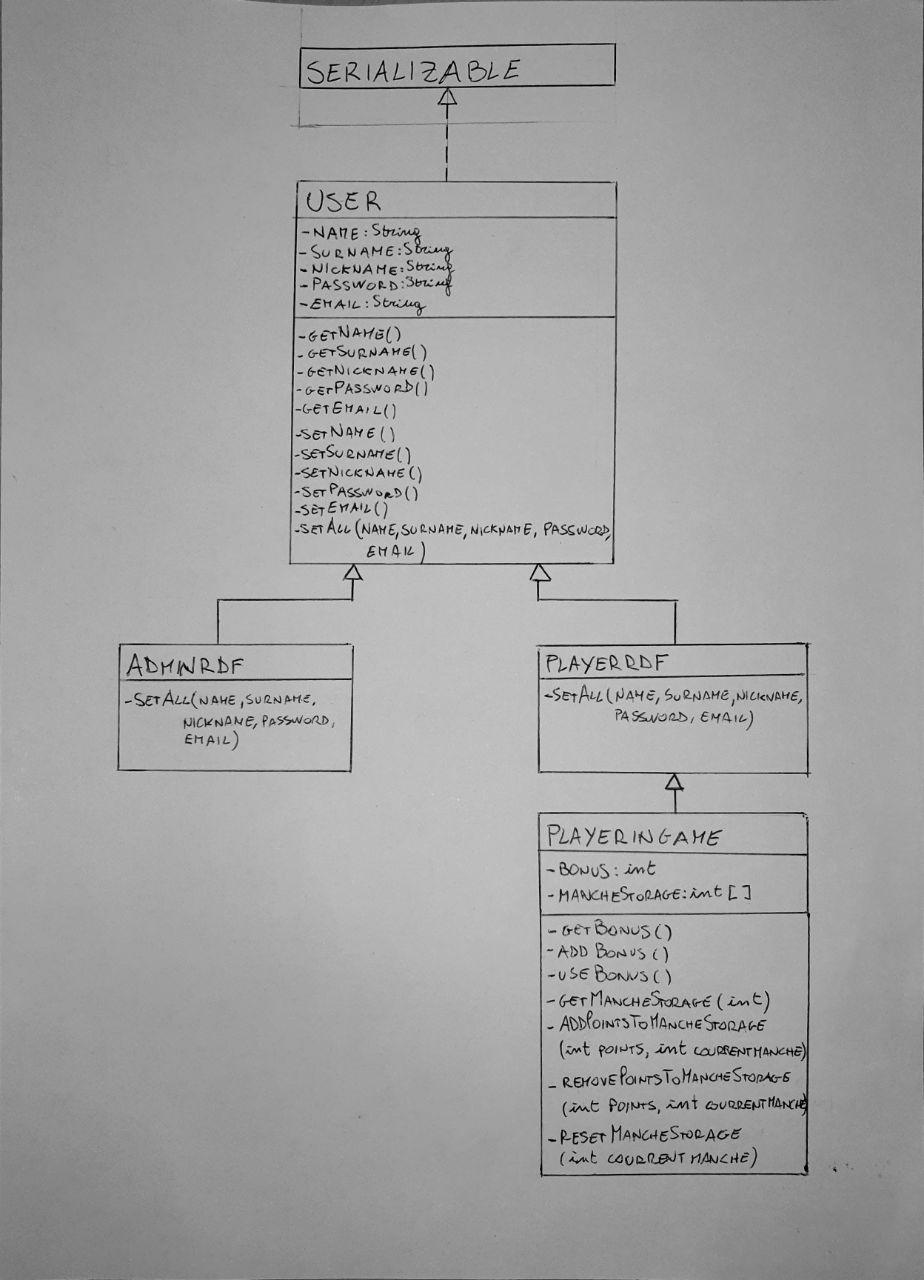 SERIALIZABLE
USER
- NAME: String
- SURNAME: String
- NICKNAME: String
- PASSWORD: String
- EMAIL: String
- GETNAME()
- GETSURNAME()
- GETNICKNAME()
- GETPASSWORD()
- GETEMAIL()
- SETNAME()
- SETSURNAME()
- SETNICKNAME()
- SETPASSWORD()
- SETEMAIL()
- SETALL(NAME, SURNAME, NICKNAME, PASSWORD,
EMAIL)
ADMINRDF
- SETALL(NAME, SURNAME,
NICKNAME, PASSWORD,
EMAIL)
PLAYERRDF
- SETALL(NAME, SURNAME, NICKNAME,
PASSWORD, EMAIL)
PLAYERINGAME
- BONUS: int
- MANCHESTORAGE: int []
- GETBONUS()
- ADDBONUS()
- USEBONUS()
- GETMANCHESTORAGE(int)
- ADDPOINTSTOMANCHESTORAGE
(int POINTS, int COURRENTMANCHE)
- REMOVEPOINTSTOMANCHESTORAGE
(int POINTS, int COURRENTMANCHE)
- RESETMANCHESTORAGE
(int COURRENTMANCHE)